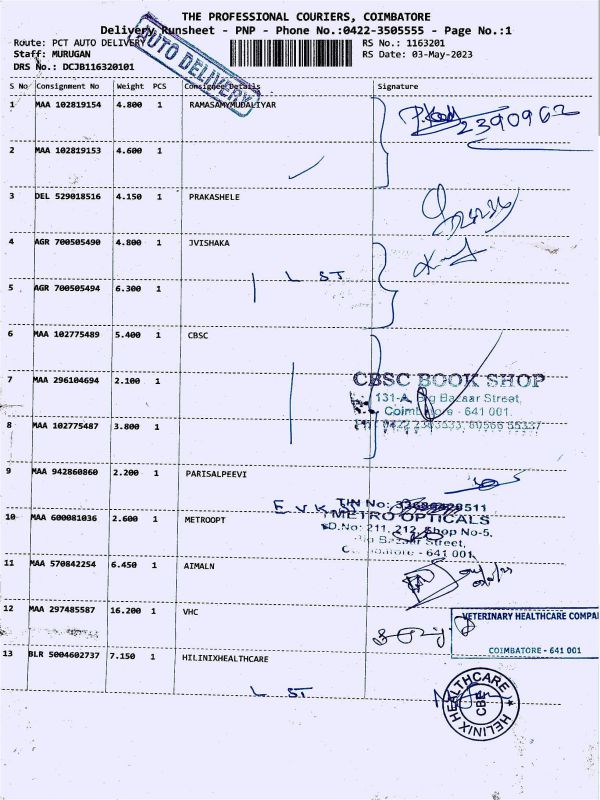 THE PROFESSIONAL COURIERS, COIMBATORE
Delivery Runsheet - PNP - Phone No.:0422-3505555 - Page No.:1
Route: PCT AUTO DELIVERY RS No.: 1163201
Staff: MURUGAN RS Date: 03-May-2023
DRS No.: DCJB116320101
AUTO DELIVERY
S No Consignment No Weight PCS Consignee Details Signature
1 MAA 102819154 4.800 1 RAMASAMYMUDALIYAR
2390962
2 MAA 102819153 4.600 1
3 DEL 529018516 4.150 1 PRAKASHELE
4 AGR 700505490 4.800 1 JVISHAKA
L ST
5 AGR 700505494 6.300 1
6 MAA 102775489 5.400 1 CBSC
7 MAA 296104694 2.100 1
CBSC BOOK SHOP
131-A, Big Bazaar Street,
Coimbatore - 641 001.
8 MAA 102775487 3.800 1
9 MAA 942860860 2.200 1 PARISALPEEVI
E.V.K.S
TIN No:
10 MAA 600081036 2.600 1 METROOPT
METRO OPTICALS
D.No: 211, 212, Shop No-5,
Big Bazaar Street,
Coimbatore - 641 001
11 MAA 570842254 6.450 1 AIMALN
12 MAA 297485587 16.200 1 VHC
VETERINARY HEALTHCARE COMPA
COIMBATORE - 641 001
13 BLR 5004602737 7.150 1 HILINIXHEALTHCARE
L ST
HELINIX HEALTHCARE
CBE